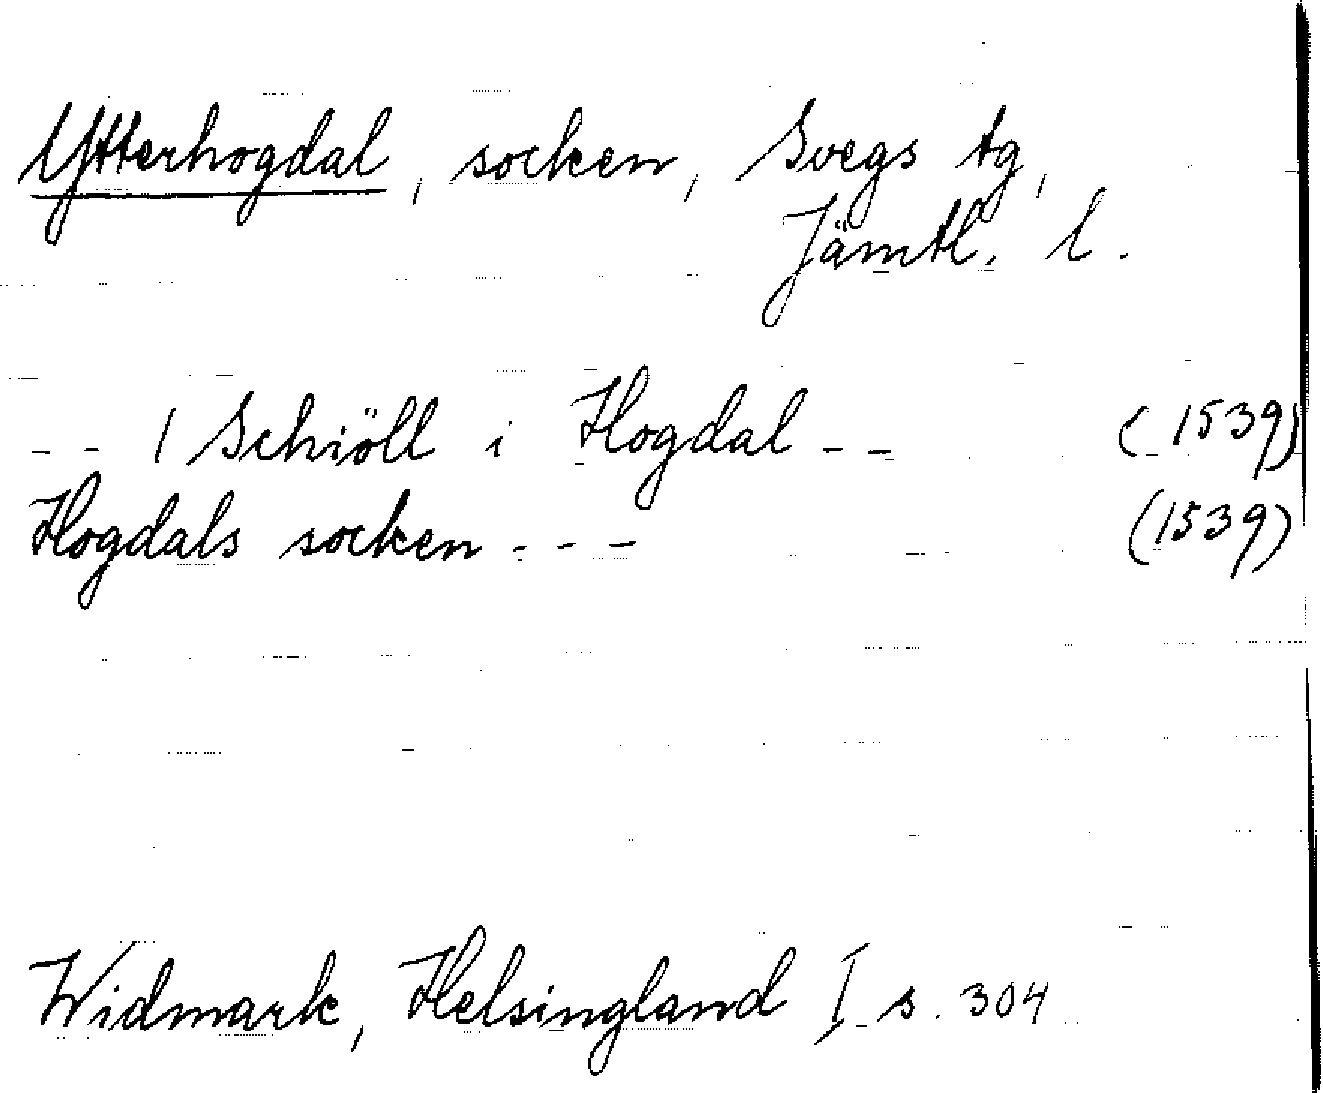 Ytterhogdal, socken, Svegs tg,
Jämtl. l.
-- 1 Schiöll i Hogdal -- (1539)
Hogdals socken --- (1539)
Widmark, Helsingland I s. 304